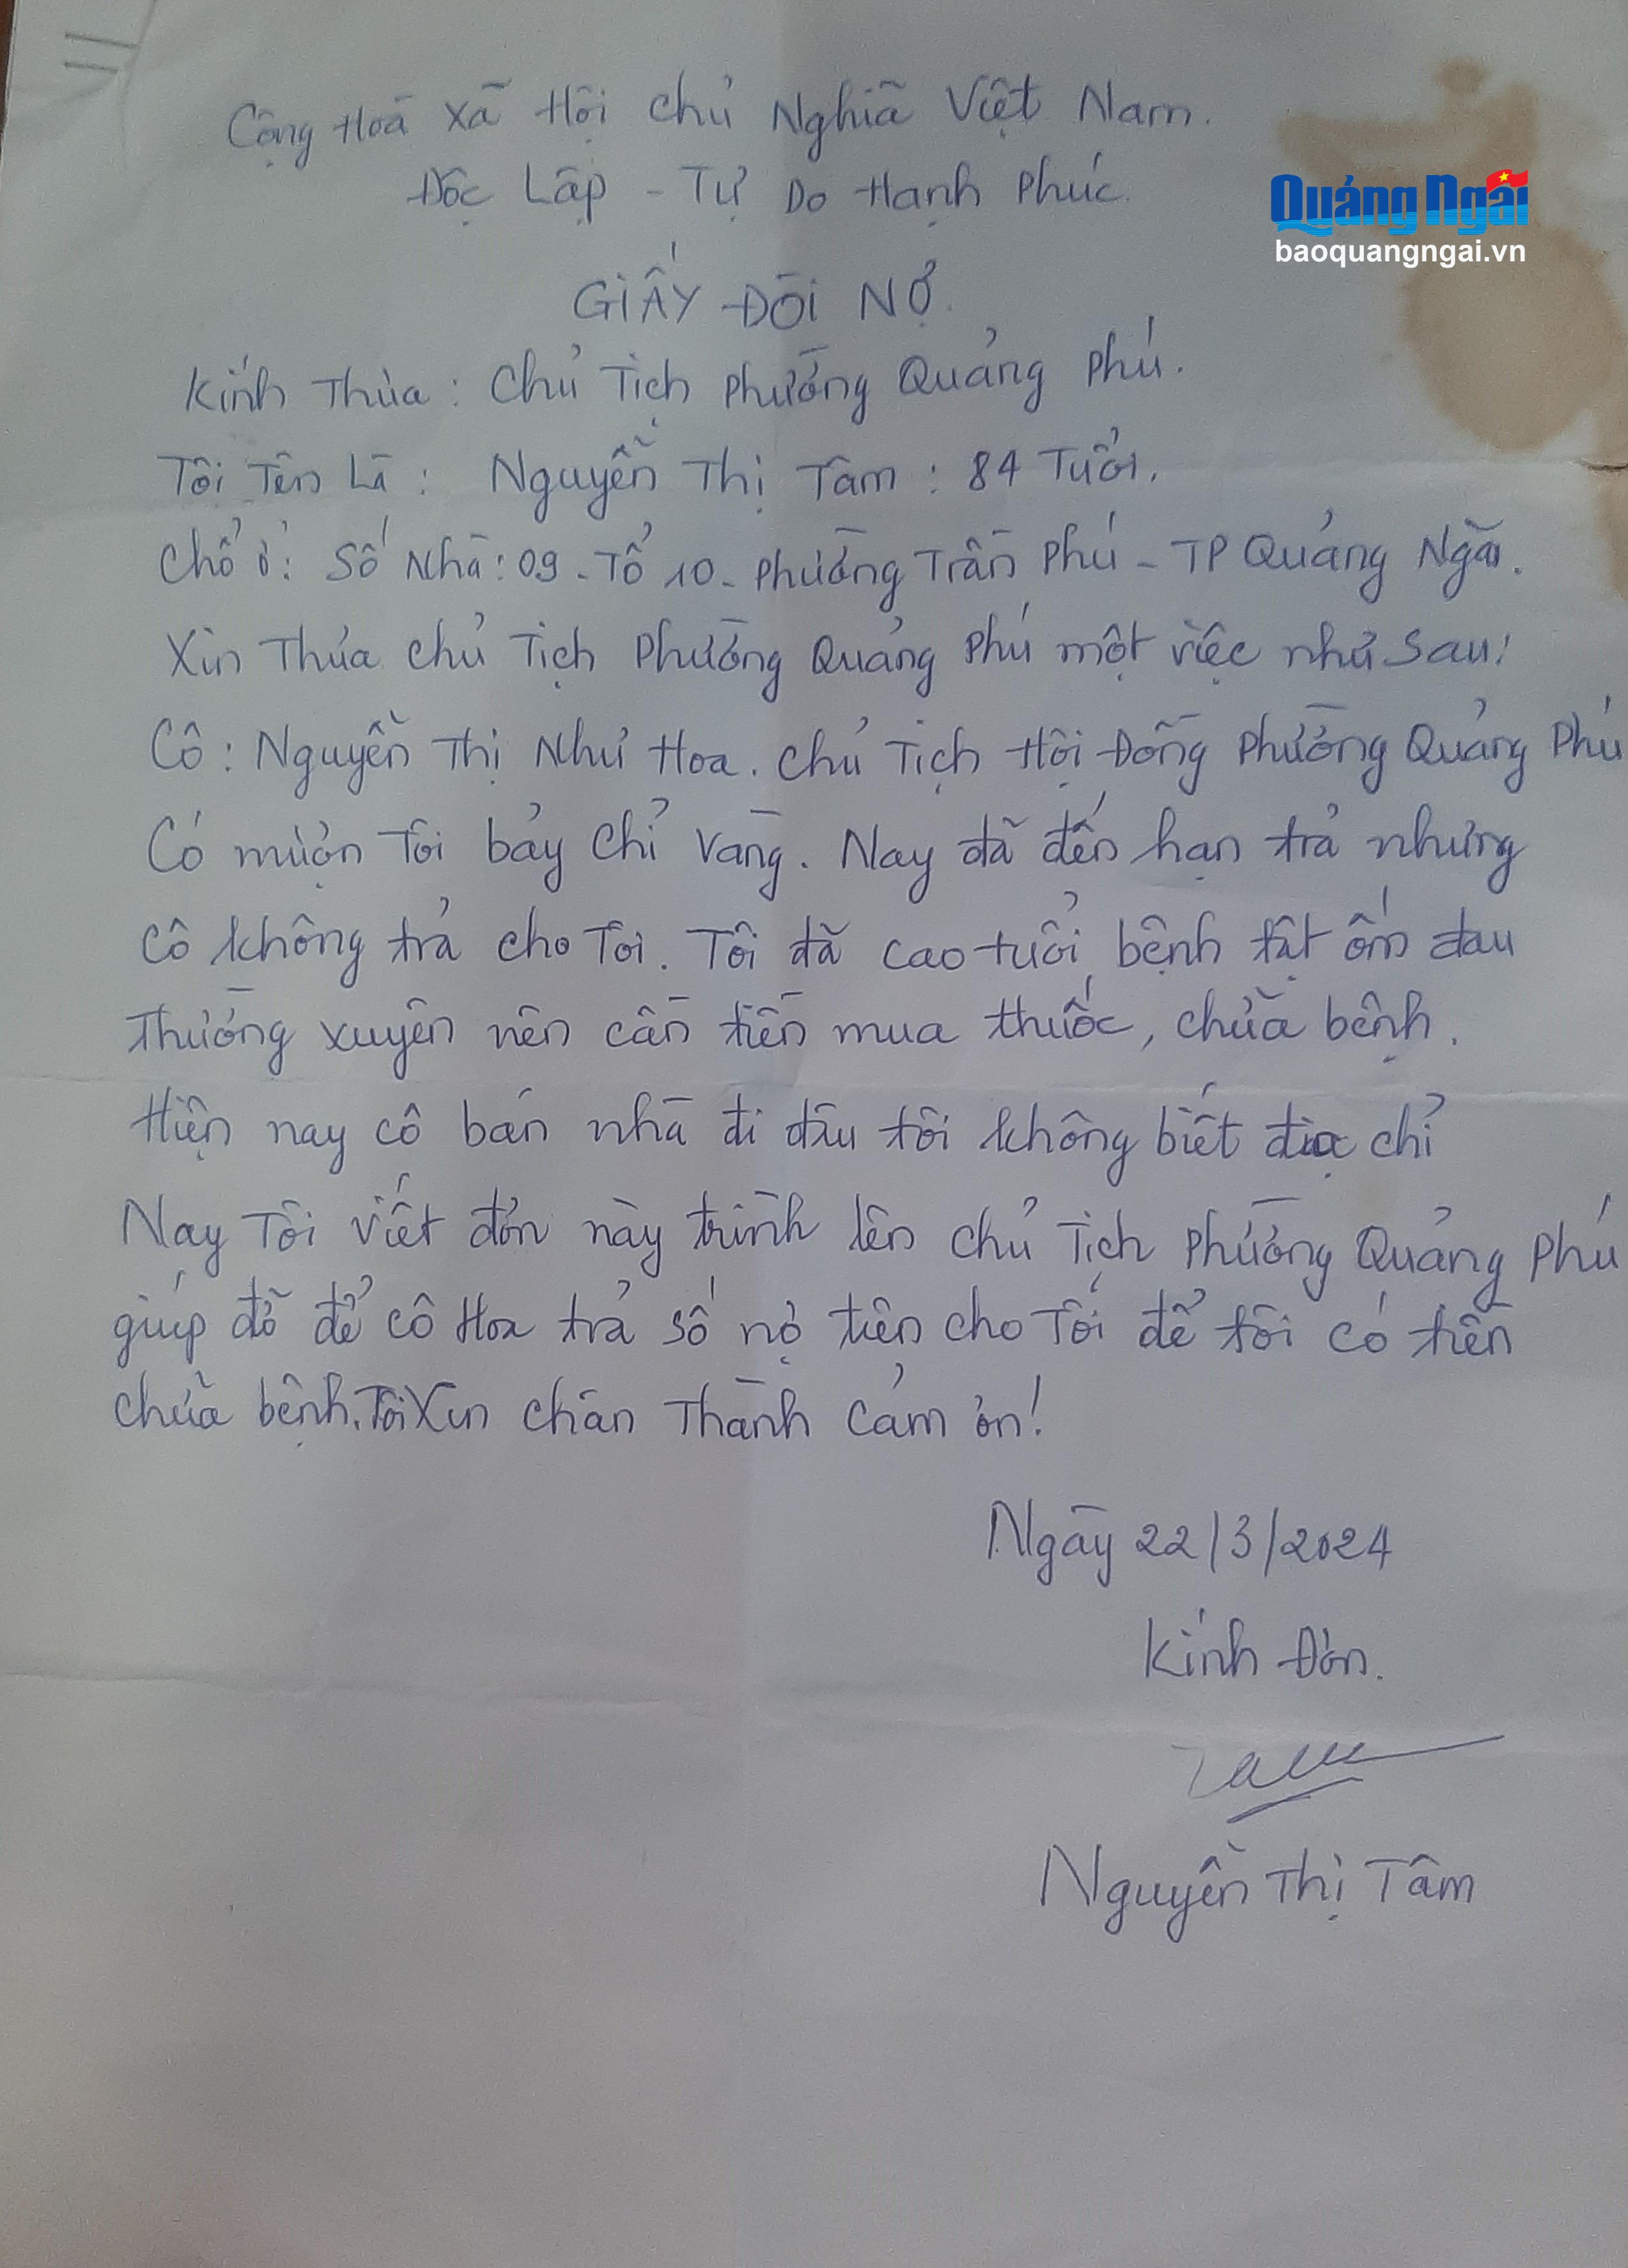 Cộng Hoà Xã Hội Chủ Nghĩa Việt Nam.
Độc Lập - Tự Do Hạnh Phúc.
Quảng Ngãi
baoquangngai.vn
GIẤY ĐÒI NỢ
Kính Thưa: Chủ Tịch Phường Quảng Phú.
Tôi Tên Là: Nguyễn Thị Tâm: 84 Tuổi.
Chổ ở: Số Nhà: 09 - Tổ 10 - Phường Trần Phú - TP Quảng Ngãi.
Xin Thưa Chủ Tịch Phường Quảng Phú một việc như sau:
Cô: Nguyễn Thị Như Hoa. Chủ Tịch Hội Đồng Phường Quảng Phú
Có mượn Tôi bảy chỉ vàng. Nay đã đến hạn trả nhưng
cô không trả cho Tôi. Tôi đã cao tuổi, bệnh tật ốm đau
Thường xuyên nên cần tiền mua thuốc, chữa bệnh.
Hiện nay cô bán nhà đi đâu tôi không biết địa chỉ
Nay Tôi viết đơn này trình lên Chủ Tịch Phường Quảng Phú
giúp đỡ để cô Hoa trả số nợ tiền cho Tôi để tôi có tiền
chữa bệnh. Tôi Xin chân Thành Cảm ơn!
Ngày 22/3/2024
Kính Đơn.
Tâm
Nguyễn Thị Tâm